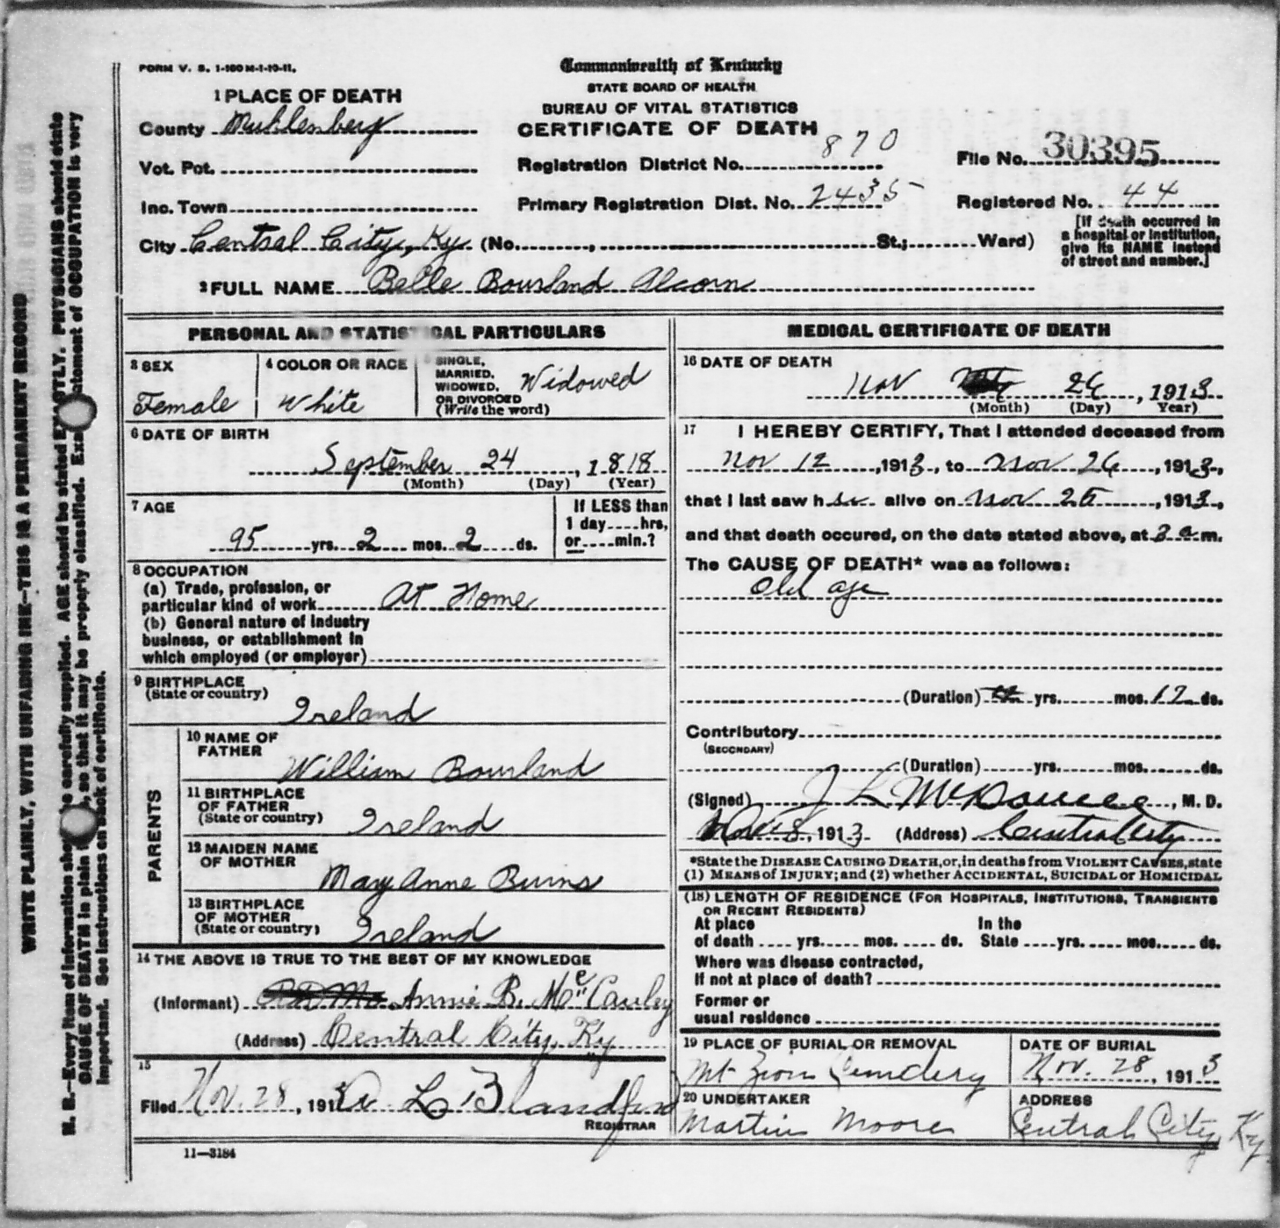 FORM V. S. 1-100M-1-19-11.
Commonwealth of Kentucky
STATE BOARD OF HEALTH
BUREAU OF VITAL STATISTICS
CERTIFICATE OF DEATH
1 PLACE OF DEATH
County Muhlenberg
Vot. Pct.
Inc. Town
City Central City, Ky. (No. , St.; Ward)
Registration District No. 870
Primary Registration Dist. No. 2435
File No. 30395
Registered No. 44
[If death occurred in
a hospital or institution,
give its NAME instead
of street and number.]
2 FULL NAME Belle Bourland Alcorn
PERSONAL AND STATISTICAL PARTICULARS
3 SEX
Female
4 COLOR OR RACE
White
5 SINGLE,
MARRIED,
WIDOWED,
OR DIVORCED
(Write the word)
Widowed
6 DATE OF BIRTH
September 24, 1818
(Month) (Day) (Year)
7 AGE
95 yrs. 2 mos. 2 ds.
If LESS than
1 day hrs,
or min.?
8 OCCUPATION
(a) Trade, profession, or
particular kind of work At Home
(b) General nature of industry
business, or establishment in
which employed (or employer)
9 BIRTHPLACE
(State or country)
Ireland
PARENTS
10 NAME OF
FATHER
William Bourland
11 BIRTHPLACE
OF FATHER
(State or country)
Ireland
12 MAIDEN NAME
OF MOTHER
Mary Anne Burns
13 BIRTHPLACE
OF MOTHER
(State or country)
Ireland
14 THE ABOVE IS TRUE TO THE BEST OF MY KNOWLEDGE
(Informant) Annie B. McCauley
(Address) Central City, Ky
15
Filed Nov. 28, 191 L Blandford
REGISTRAR
11—3184
MEDICAL CERTIFICATE OF DEATH
16 DATE OF DEATH
Nov 26, 1913
(Month) (Day) Year)
17 I HEREBY CERTIFY, That I attended deceased from
Nov 12, 1913, to Nov 26, 1913,
that I last saw h alive on Nov 25, 1913,
and that death occured, on the date stated above, at 3 a m.
The CAUSE OF DEATH* was as follows:
Old age
(Duration) yrs. mos. 12 ds.
Contributory
(SECONDARY)
(Duration) yrs. mos. ds.
(Signed) J L , M. D.
1913 (Address) Central City
*State the DISEASE CAUSING DEATH, or, in deaths from VIOLENT CAUSES, state
(1) MEANS OF INJURY; and (2) whether ACCIDENTAL, SUICIDAL or HOMICIDAL
(18) LENGTH OF RESIDENCE (FOR HOSPITALS, INSTITUTIONS, TRANSIENTS
OR RECENT RESIDENTS)
At place In the
of death yrs. mos. ds. State yrs. mos. ds.
Where was disease contracted,
If not at place of death?
Former or
usual residence
19 PLACE OF BURIAL OR REMOVAL
Mt Zion Cemetery
DATE OF BURIAL
Nov. 28, 1913
20 UNDERTAKER
Martin Moore
ADDRESS
Central City Ky
WRITE PLAINLY, WITH UNFADING INK—THIS IS A PERMANENT RECORD
N. B.—Every item of information should be carefully supplied. AGE should be stated EXACTLY. PHYSICIANS should state
CAUSE OF DEATH in plain , so that it may be properly classified. Exact statement of OCCUPATION is very
important. See instructions on back of certificate.